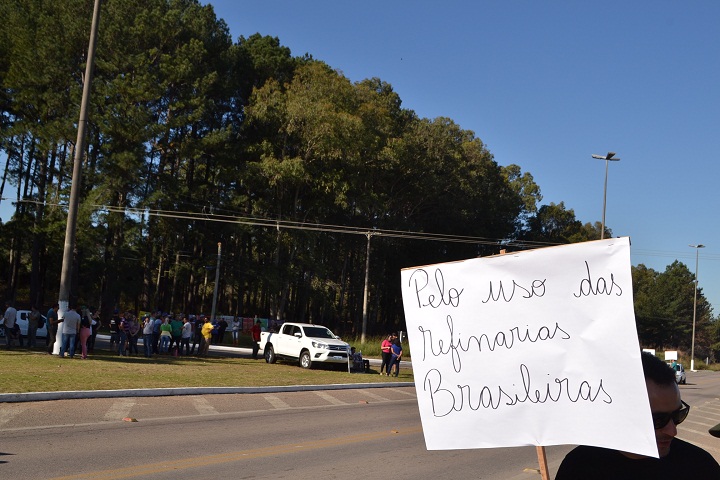 Pelo uso das
refinarias
Brasileiras